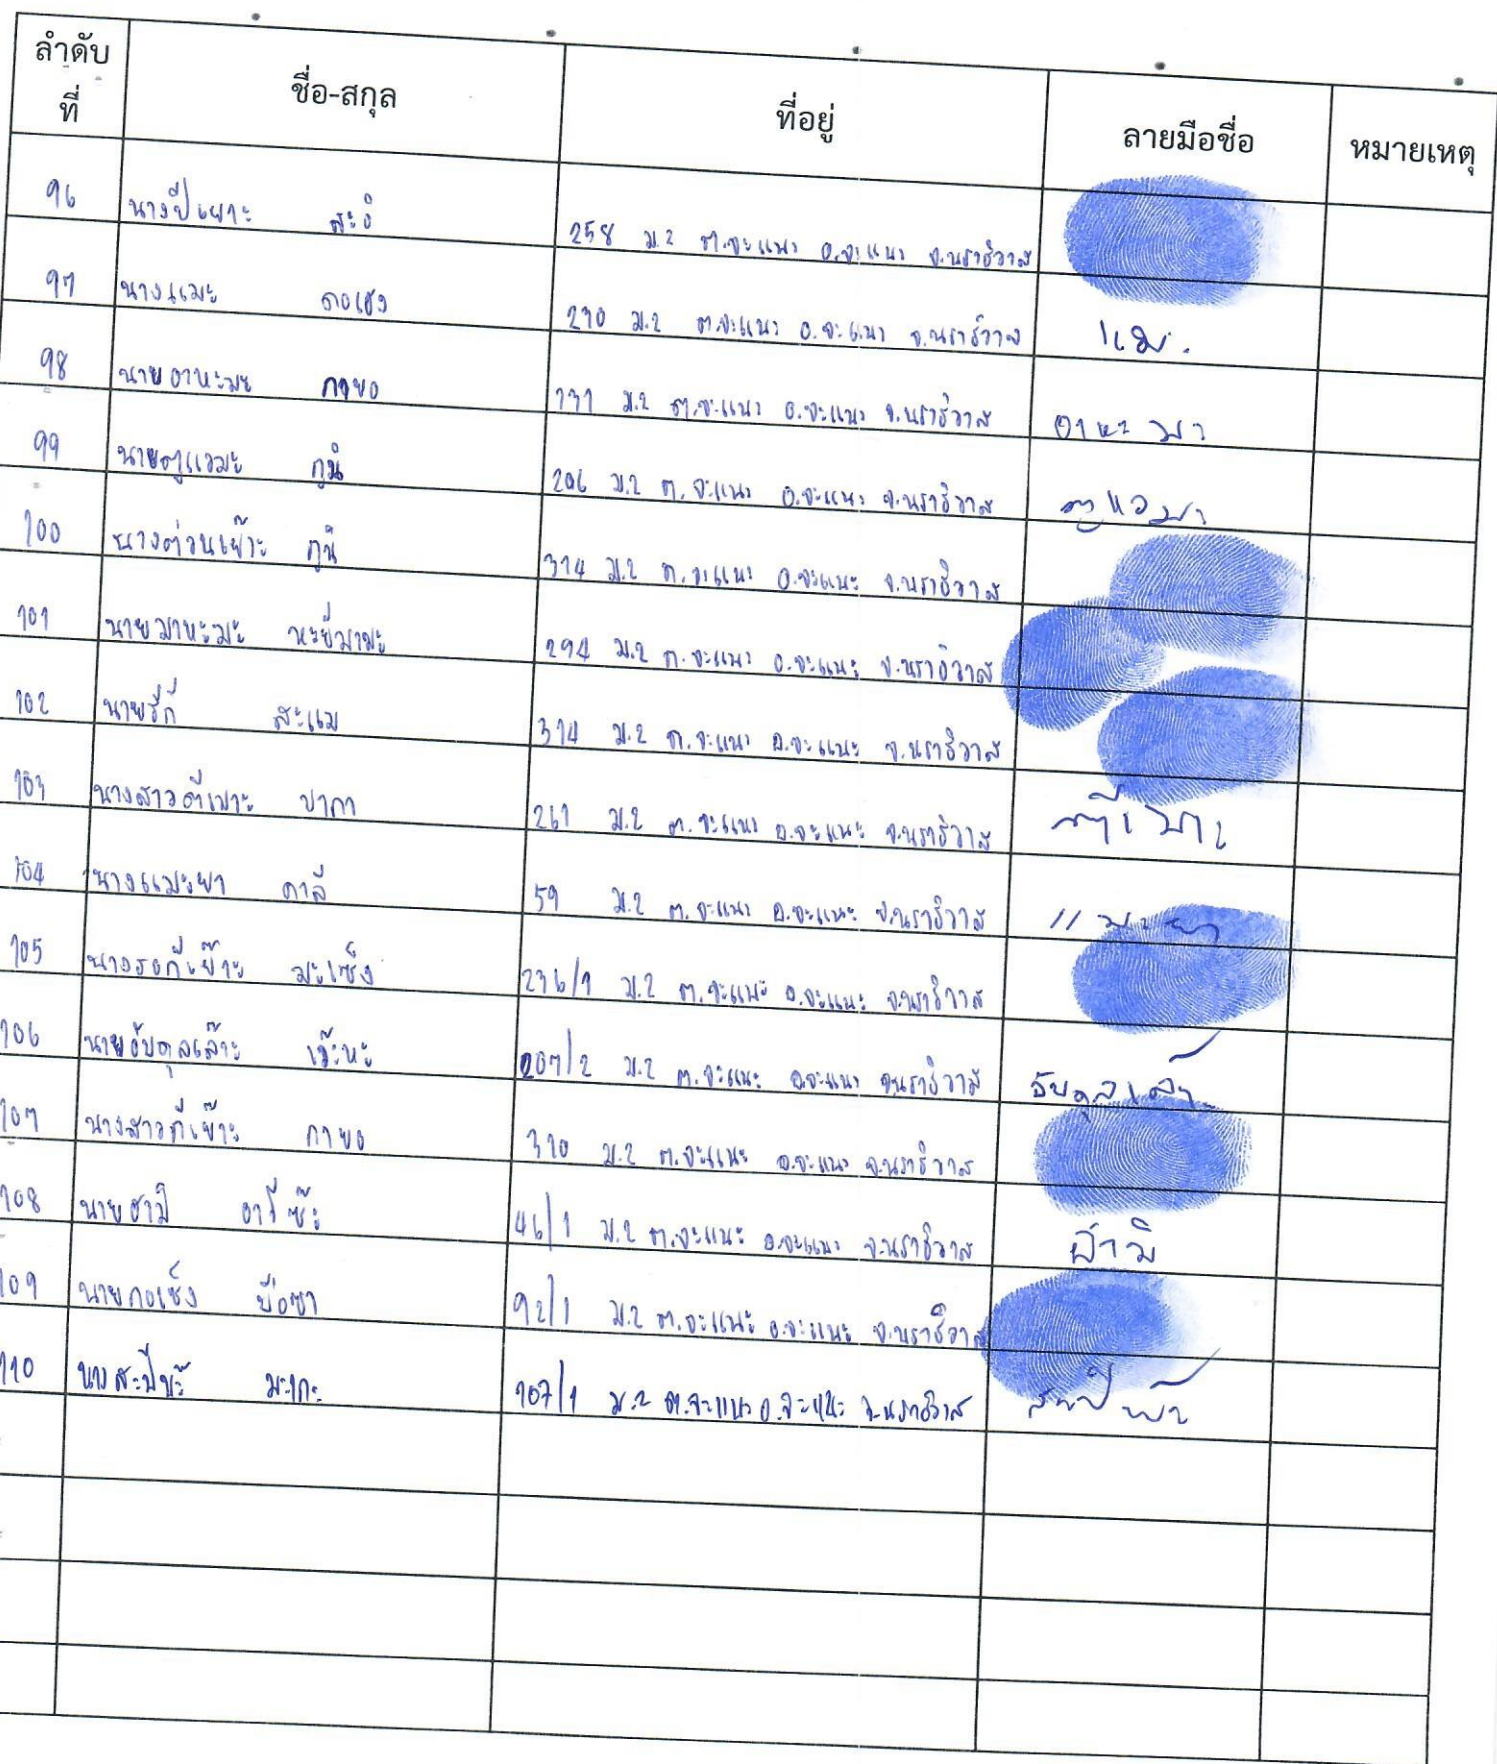 ลำดับที่ ชื่อ-สกุล ที่อยู่ ลายมือชื่อ หมายเหตุ
96 นางปีเยาะ สะอิ 258 ม.2 ต.จะแนะ อ.จะแนะ จ.นราธิวาส
97 นางแมะ 270 ม.2 ต.จะแนะ อ.จะแนะ จ.นราธิวาส แมะ
98 นายอาหะมะ กายอ 131 ม.2 ต.จะแนะ อ.จะแนะ จ.นราธิวาส อาหะมะ
99 นายตูแวมะ กูนิ 206 ม.2 ต.จะแนะ อ.จะแนะ จ.นราธิวาส ตูแวมะ
100 นางต่วนเย๊าะ กูนิ 314 ม.2 ต.จะแนะ อ.จะแนะ จ.นราธิวาส
101 นายมาหะมะ หะยีมามะ 294 ม.2 ต.จะแนะ อ.จะแนะ จ.นราธิวาส
102 นายรีกี สะแม 314 ม.2 ต.จะแนะ อ.จะแนะ จ.นราธิวาส
103 นางสาวตีเมาะ ปากา 261 ม.2 ต.จะแนะ อ.จะแนะ จ.นราธิวาส ตีเมาะ
104 นางแมะยา ดาลี 59 ม.2 ต.จะแนะ อ.จะแนะ จ.นราธิวาส แมะยา
105 นางรอกีเย๊าะ มะเซ็ง 236/1 ม.2 ต.จะแนะ อ.จะแนะ จ.นราธิวาส
106 นายอับดุลเล๊าะ เจ๊ะหะ 207/2 ม.2 ต.จะแนะ อ.จะแนะ จ.นราธิวาส อับดุลเล๊าะ
107 นางสาวตีเย๊าะ กายอ 310 ม.2 ต.จะแนะ อ.จะแนะ จ.นราธิวาส
108 นายฮามิ อาแซ๊ะ 46/1 ม.2 ต.จะแนะ อ.จะแนะ จ.นราธิวาส ฮามิ
109 นายกอเซ็ง บือซา 92/1 ม.2 ต.จะแนะ อ.จะแนะ จ.นราธิวาส
110 มะเกะ 107/1 ม.2 ต.จะแนะ อ.จะแนะ จ.นราธิวาส